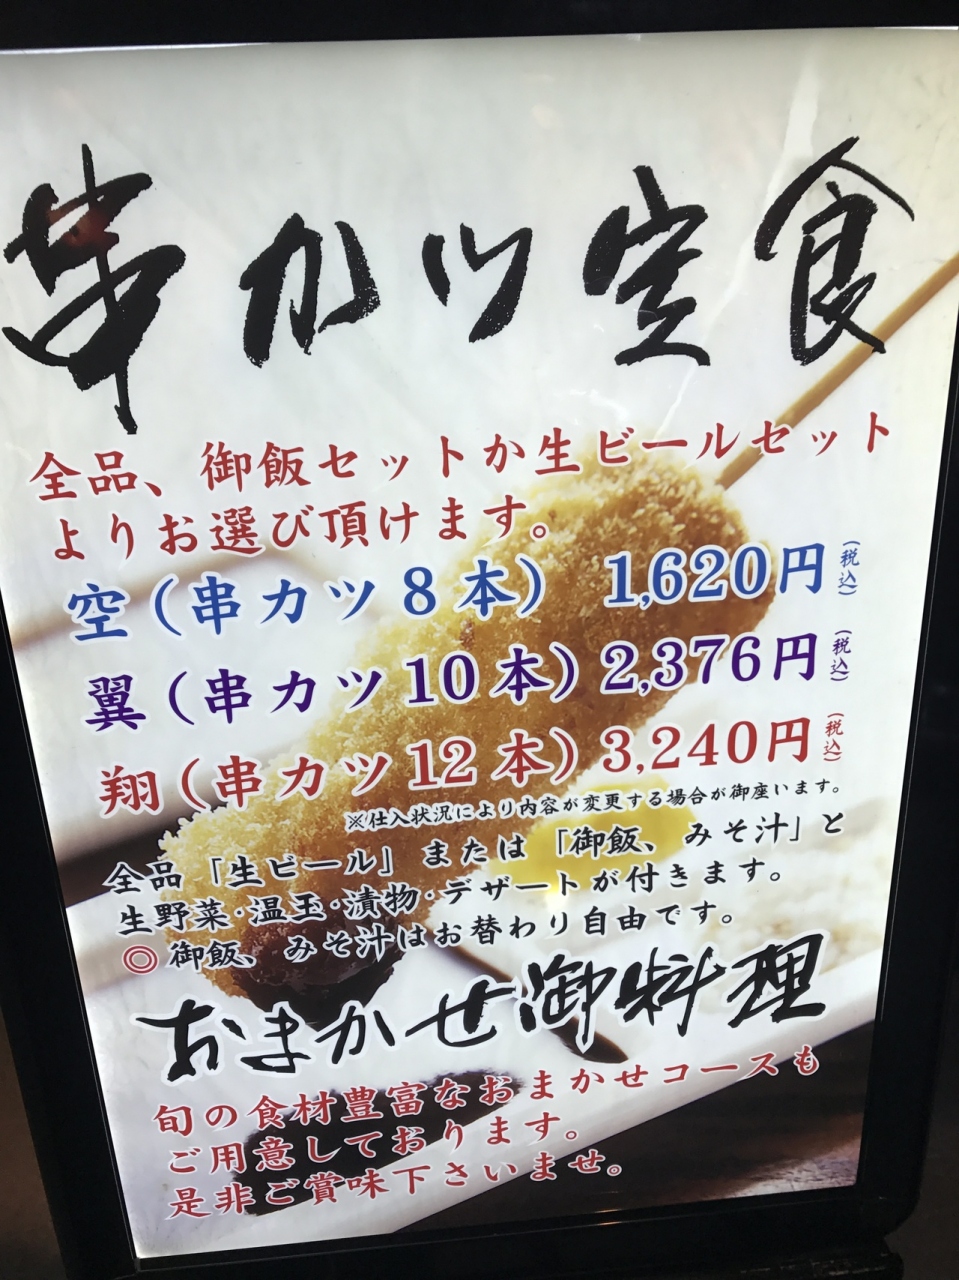 串カツ定食
全品、御飯セットか生ビールセット
よりお選び頂けます。
空(串カツ8本) 1,620円(税込)
翼(串カツ10本)2,376円(税込)
翔(串カツ12本)3,240円(税込)
※仕入状況により内容が変更する場合が御座います。
全品「生ビール」または「御飯、みそ汁」と
生野菜・温玉・漬物・デザートが付きます。
◎御飯、みそ汁はお替わり自由です。
おまかせ御料理
旬の食材豊富なおまかせコースも
ご用意しております。
是非ご賞味下さいませ。